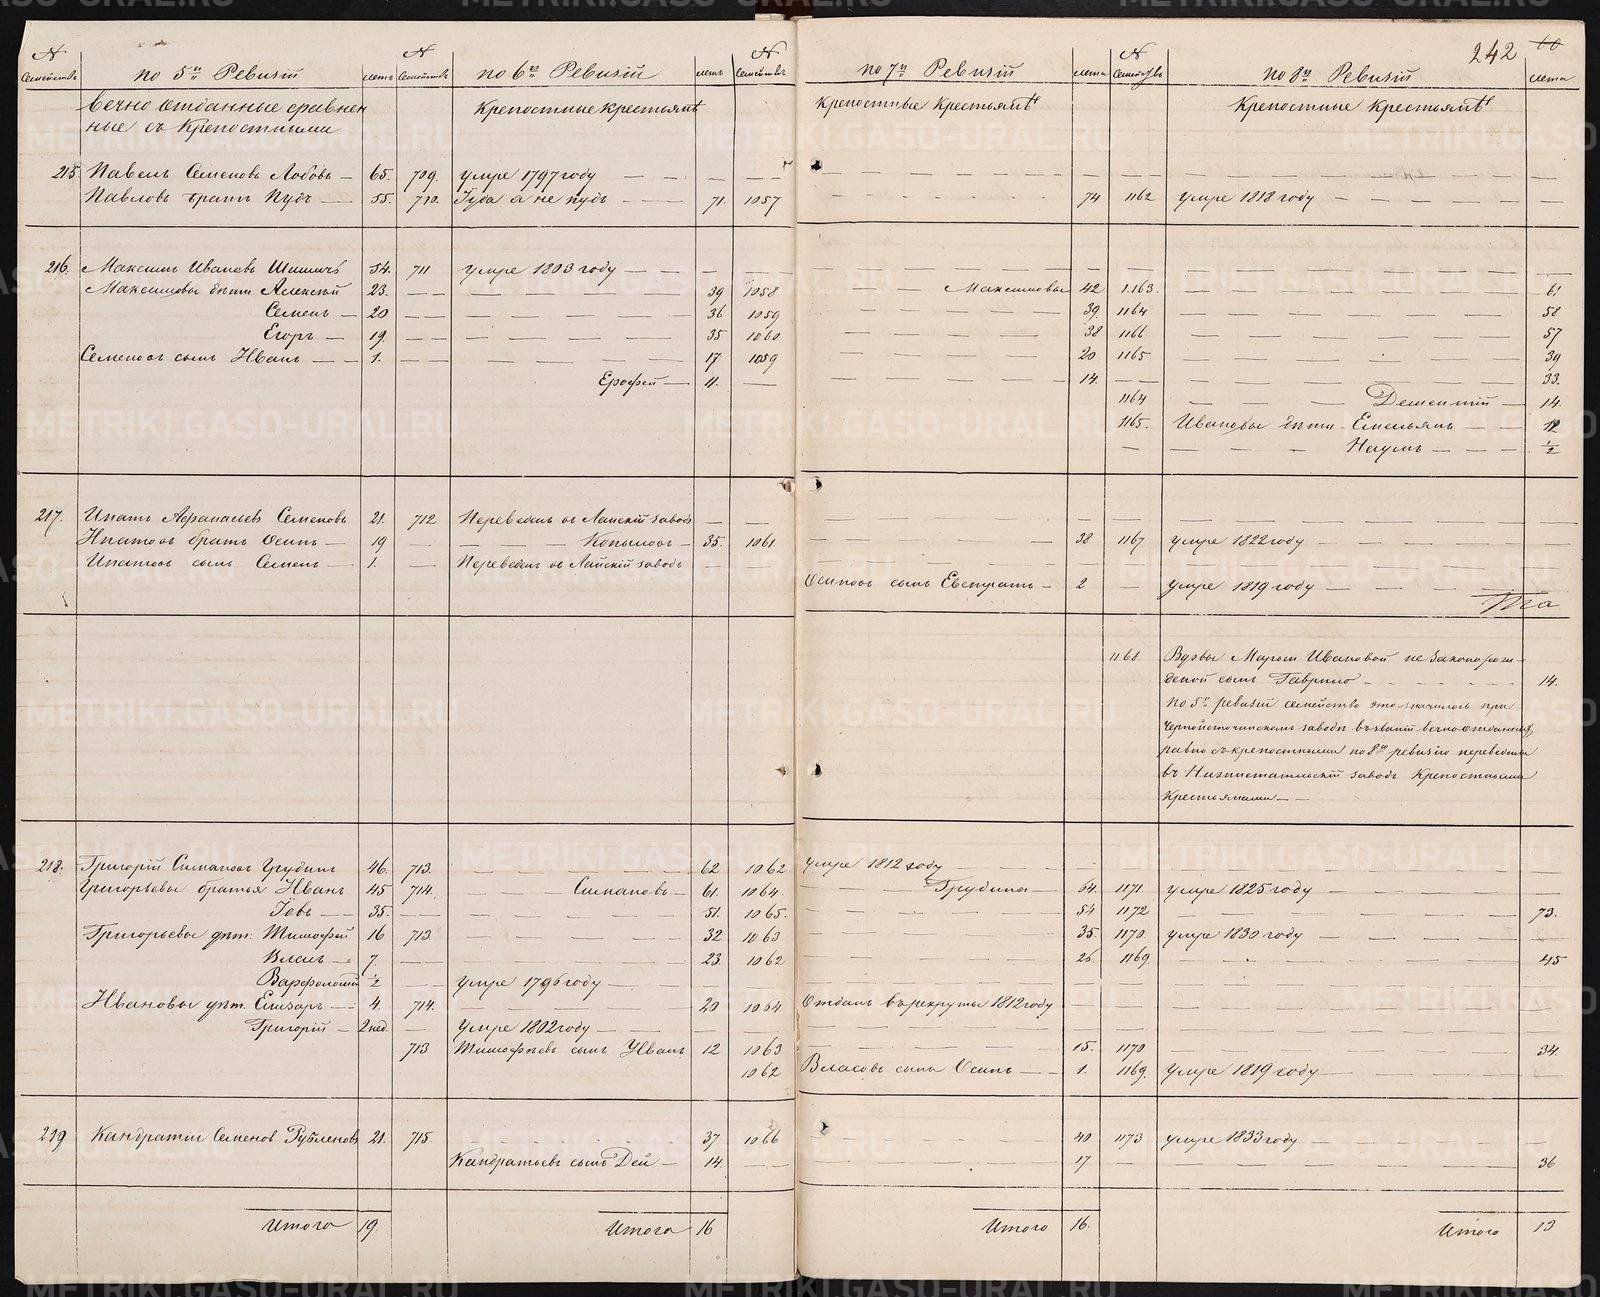 242 60
N Семействъ по 5й Ревизіи лета N Семействъ по 6й Ревизіи летъ N Семействъ по 7й Ревизіи лета N Семействъ по 8й Ревизіи лета
Вечно отданные сравнен Крепостные крестьяне крепостные Крестьяне Крепостные Крестьяне
ные съ Крепостными
215. Павелъ Семеновъ Лобовъ 65. 709. умре 1797 году
Павловъ братъ Пудъ 55. 710. Іуда а не пудъ 71. 1057 74 1162 умре 1818 году
216. Максимъ Ивановъ 54. 711 умре 1803 году
Максимовы дети Алексей 23. 39 1058 Максимовы 42 1163. 61
Семенъ 20 36 1059 39. 1164 58
Егоръ 19. 35 1060 38 1166 57
Семеновъ сынъ Иванъ 1. 17 1059 20 1165 39
Ерофей 11. 14. 33.
1164 Дементій 14.
1165. Ивановы дети Емельянъ 12
Наумъ 1/2
217. Ипатъ Афанасьевъ Семеновъ 21. 712 Переведенъ въ Лайскій заводъ
Ипатовъ братъ Осипъ 19 Копыловъ 35. 1061 38 1167 умре 1822 году
Ипатовъ сынъ Семенъ 1. Переведенъ въ Лайскій заводъ
Осиповъ сынъ Евстратъ 2 умре 1819 году
1168. Вдовы Марьи Ивановой не законорож-
деной сынъ Гаврило 14.
по 5й ревизіи семейство это значилось при
Черноисточинскомъ заводе въ званіи вечно отданныхъ
равно съ крепостными по 8ю ревизію переведены
въ Нижнетагильскій заводъ Крепостными
Крестьянами
218. Григорій Симановъ Грудинъ 46. 713. 62 1062 умре 1812 году
Григорьевы братья Иванъ 45 714. Симановъ 61. 1064. Грудина 64. 1171. умре 1825 году
Іовъ 35. 51. 1065. 54 1172 73.
Григорьевы дети Тимофей 16 713. 32 1063 35. 1170. умре 1830 году
Власъ 7. 23. 1062 26. 1169. 45
Варфоломей 1/2 умре 1796 году
Ивановы дети Елизаръ 4. 714. 20 1064 Отданъ въ рекруты 1812 году
Григорій 2 нед. умре 1802 году
713 Тимофеевъ сынъ Иванъ 12 1063 15. 1170 34.
1062 Власовъ сынъ Осипъ 1. 1169. умре 1819 году
219 Кандратій Семеновъ Рубленовъ 21. 715. 37 1066 40 1173 умре 1833 году
Кандратьевъ сынъ Дей 14 17 36
Итого 19. Итого 16 Итого 16. Итого 13
METRIKI.GASO-URAL.RU